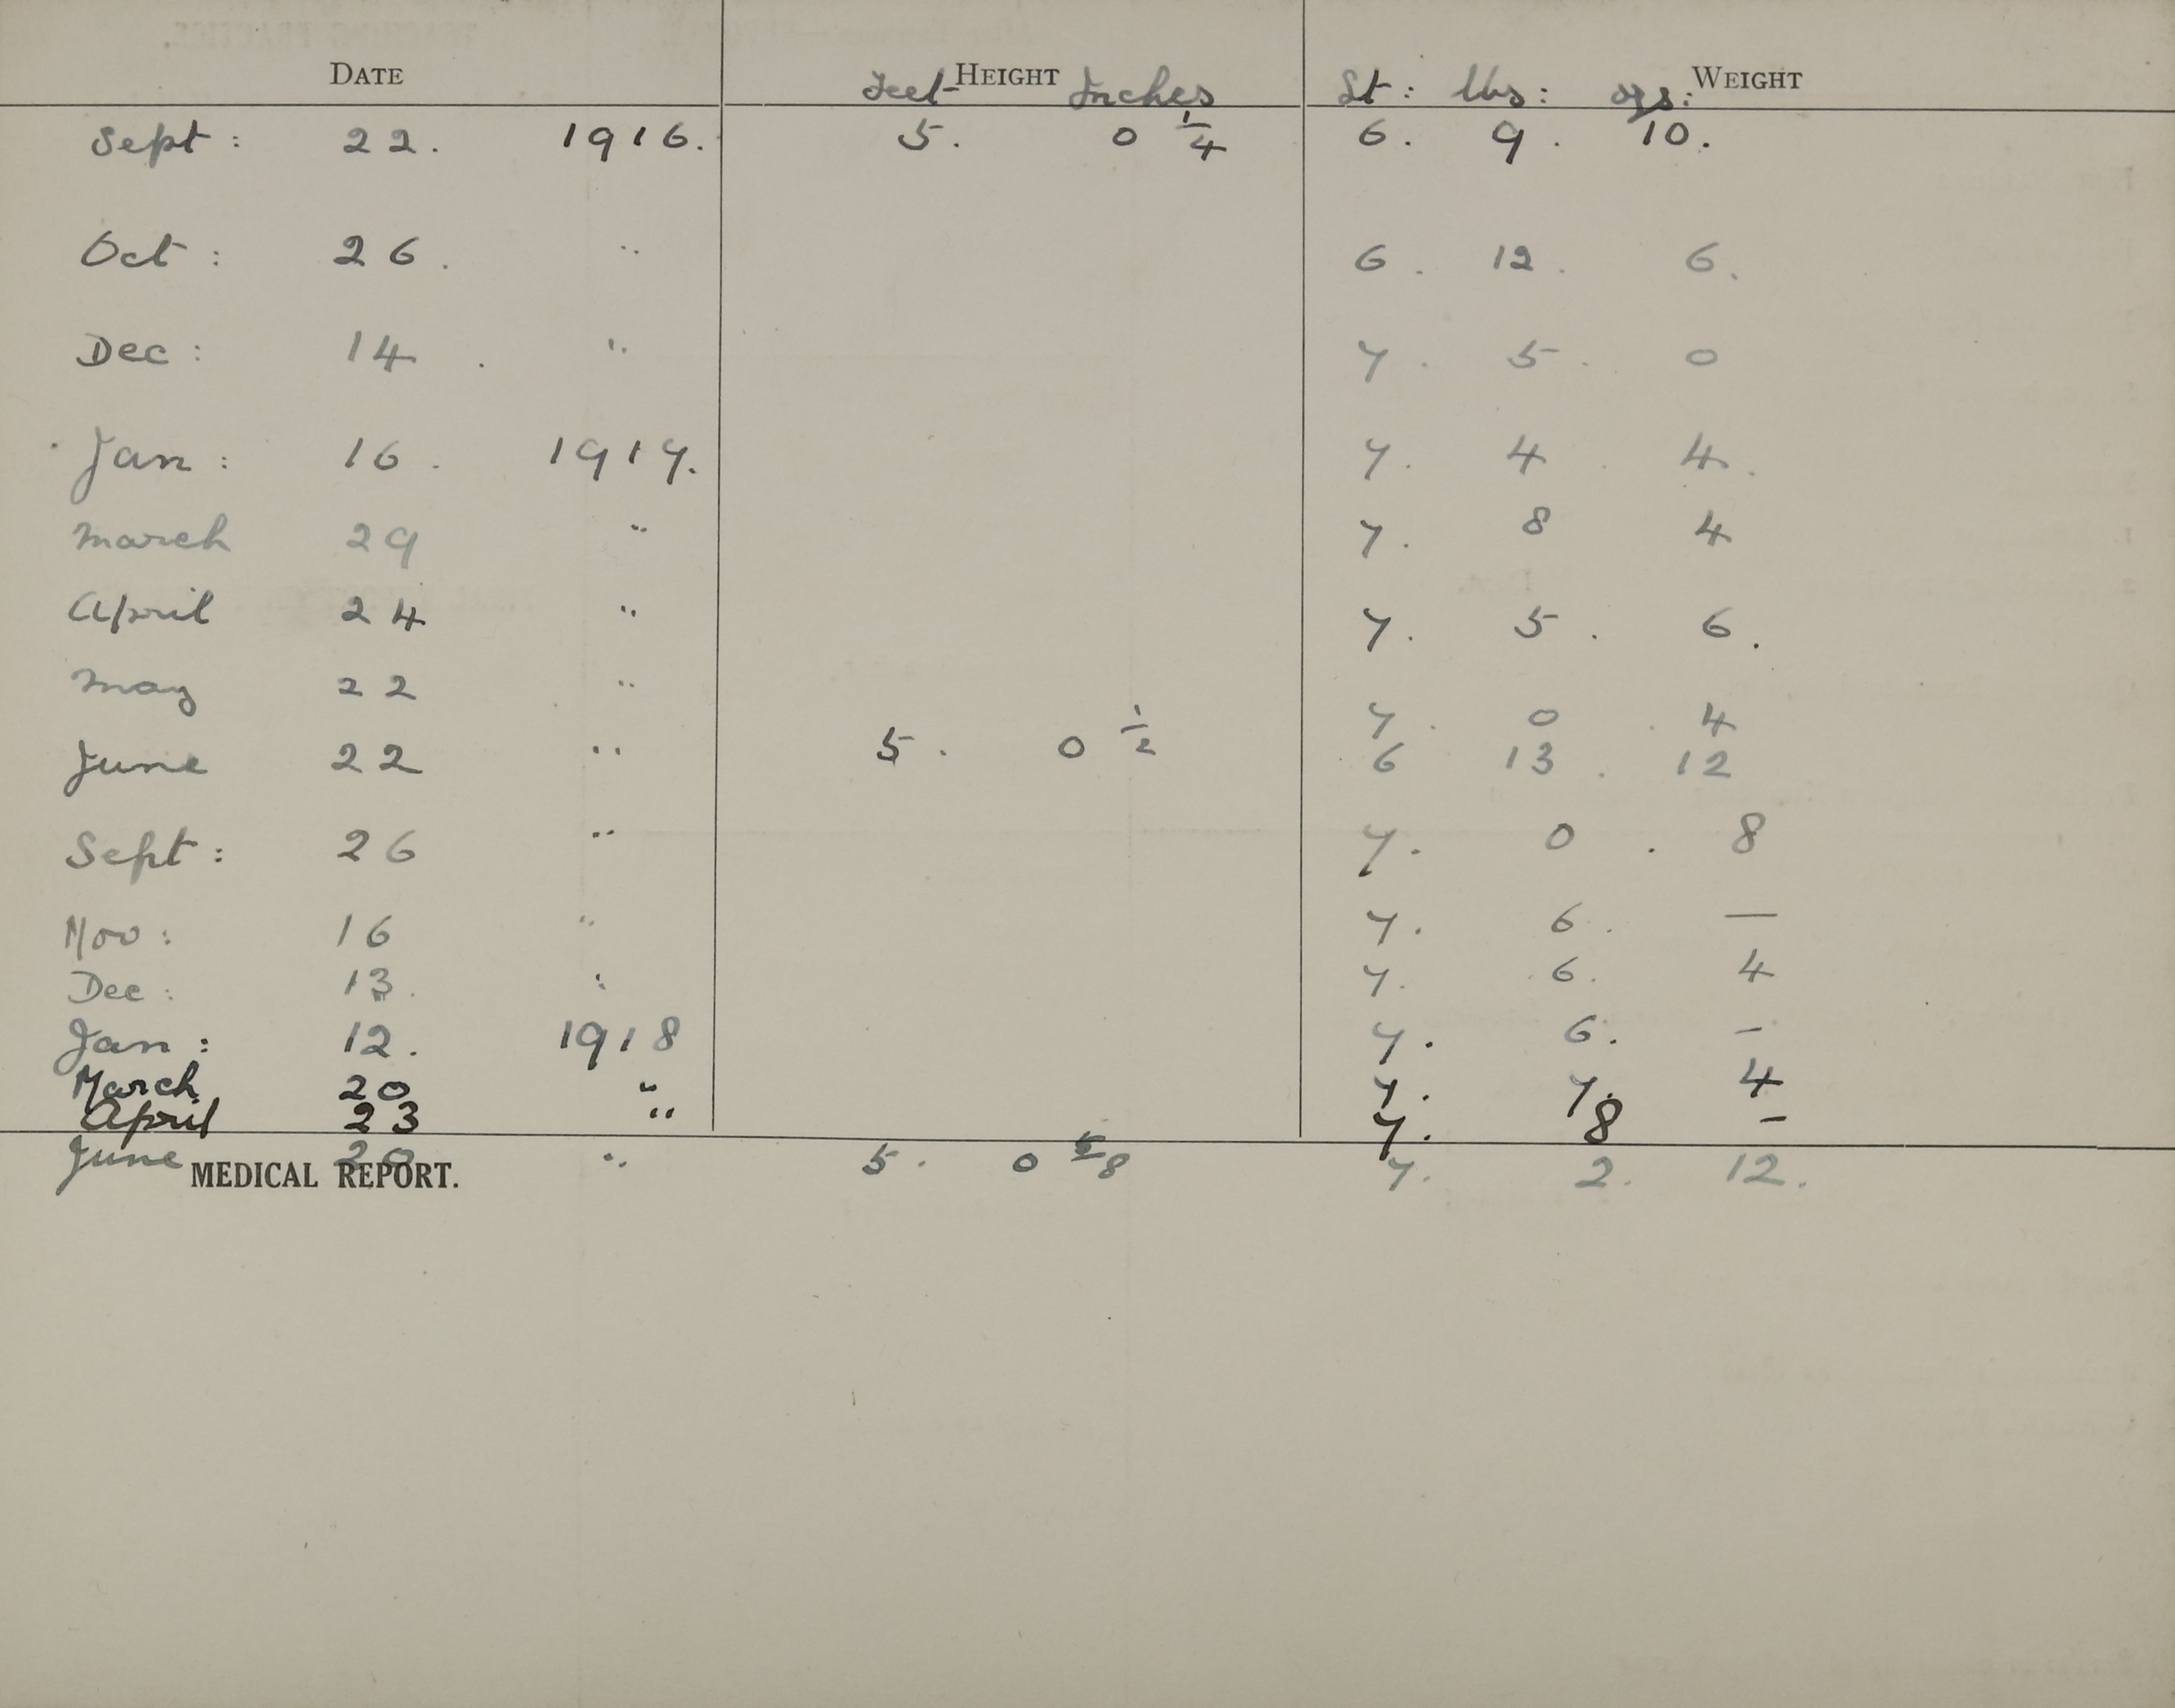 DATE HEIGHT WEIGHT
Feet Inches St: lbs: ozs:
Sept: 22. 1916. 5. 0 1/4 6. 9. 10.
Oct: 26. " 6. 12. 6.
Dec: 14. " 7. 5. 0
Jan: 16. 1917. 7. 4. 4.
March 29 " 7. 8 4
April 24 " 7. 5. 6.
May 22 " 7. 0. 4
June 22 " 5. 0 1/2 6 13. 12
Sept: 26 " 7. 0. 8
Nov: 16 " 7. 6. —
Dec: 13. " 7. 6. 4
Jan: 12. 1918 7. 6. –
March 20 " 7. 7. 4
April 23 " 7. 8 –
June 20 " 5. 0 5/8 7. 2. 12.
MEDICAL REPORT.